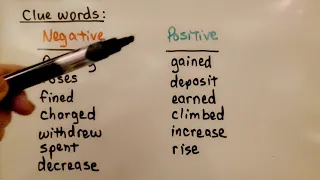 Clue words:
Negative
fined
charged
withdrew
spent
decrease
Positive
gained
deposit
earned
climbed
increase
rise